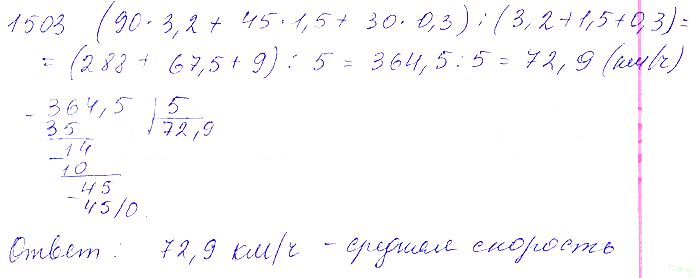 1503 (90·3,2 + 45·1,5 + 30·0,3) : (3,2+1,5+0,3) =
= (288 + 67,5 + 9) : 5 = 364,5 : 5 = 72,9 (км/ч)
- 364,5 | 5
35 72,9
- 14
10
- 45
45/0
Ответ: 72,9 км/ч - средняя скорость